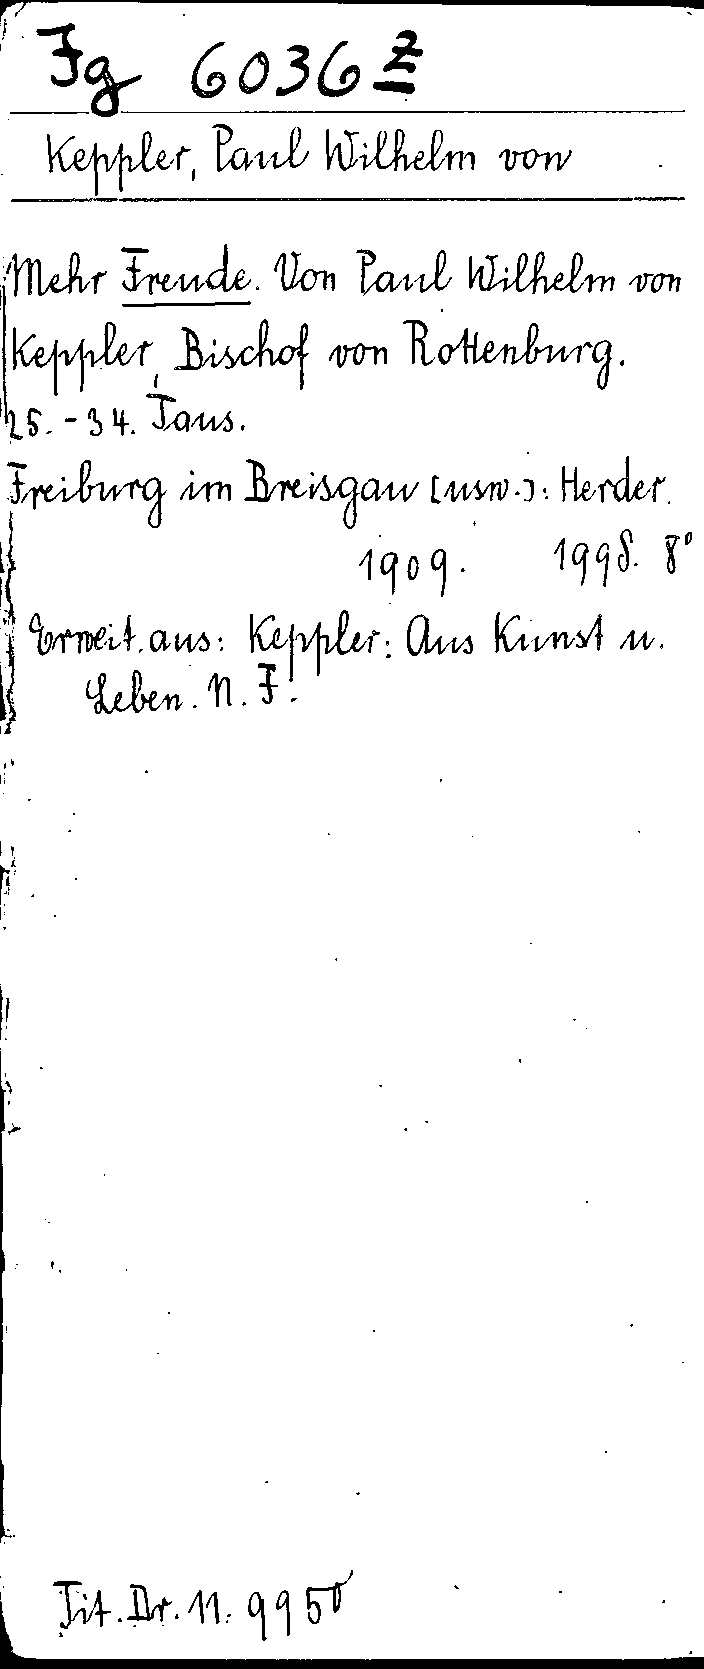 Fg 6036 z
Keppler, Paul Wilhelm von
Mehr Freude. Von Paul Wilhelm von
Keppler, Bischof von Rottenburg.
25.-34. Taus.
Freiburg im Breisgau [usw.]: Herder.
1909. 199 S. 8°
Erweit. aus: Keppler: Aus Kunst u.
Leben. N. F.
Tit. Dr. 11. 9950